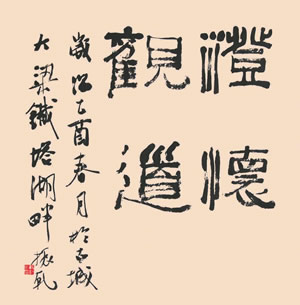 澄懷
觀道
歲次乙酉春月於古城
大梁鐵塔湖畔振